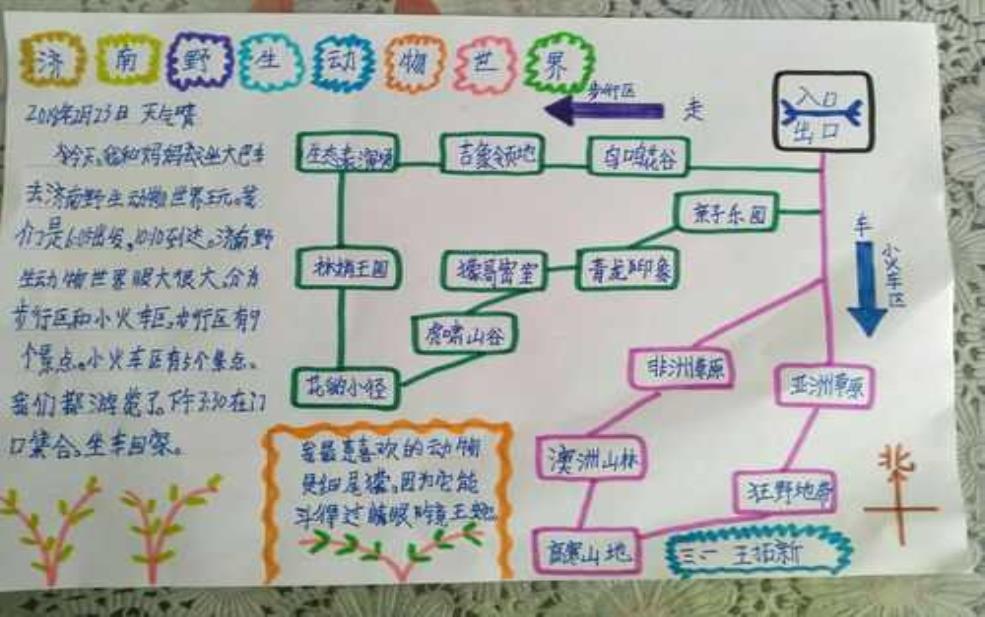 济南野生动物世界
2018年2月23日 天气晴
今天,我和妈妈乘坐大巴车
去济南野生动物世界玩。我
们是6:05出发,10:10到达。济南野
生动物世界很大很大,分为
步行区和小火车区,步行区有9
个景点。小火车区有5个景点。
我们都游览了。下午3:30在门
口集合。坐车回家。
步行区
走
入口
出口
生态表演场
吉象领地
鸟鸣花谷
亲子乐园
林猬王国
獴哥密室
青龙印象
虎啸山谷
花豹小径
车
小火车区
非洲草原
亚洲草原
澳洲山林
狂野地带
高寒山地
北
我最喜欢的动物
是细尾獴,因为它能
斗得过眼镜王蛇
三一 王拓新